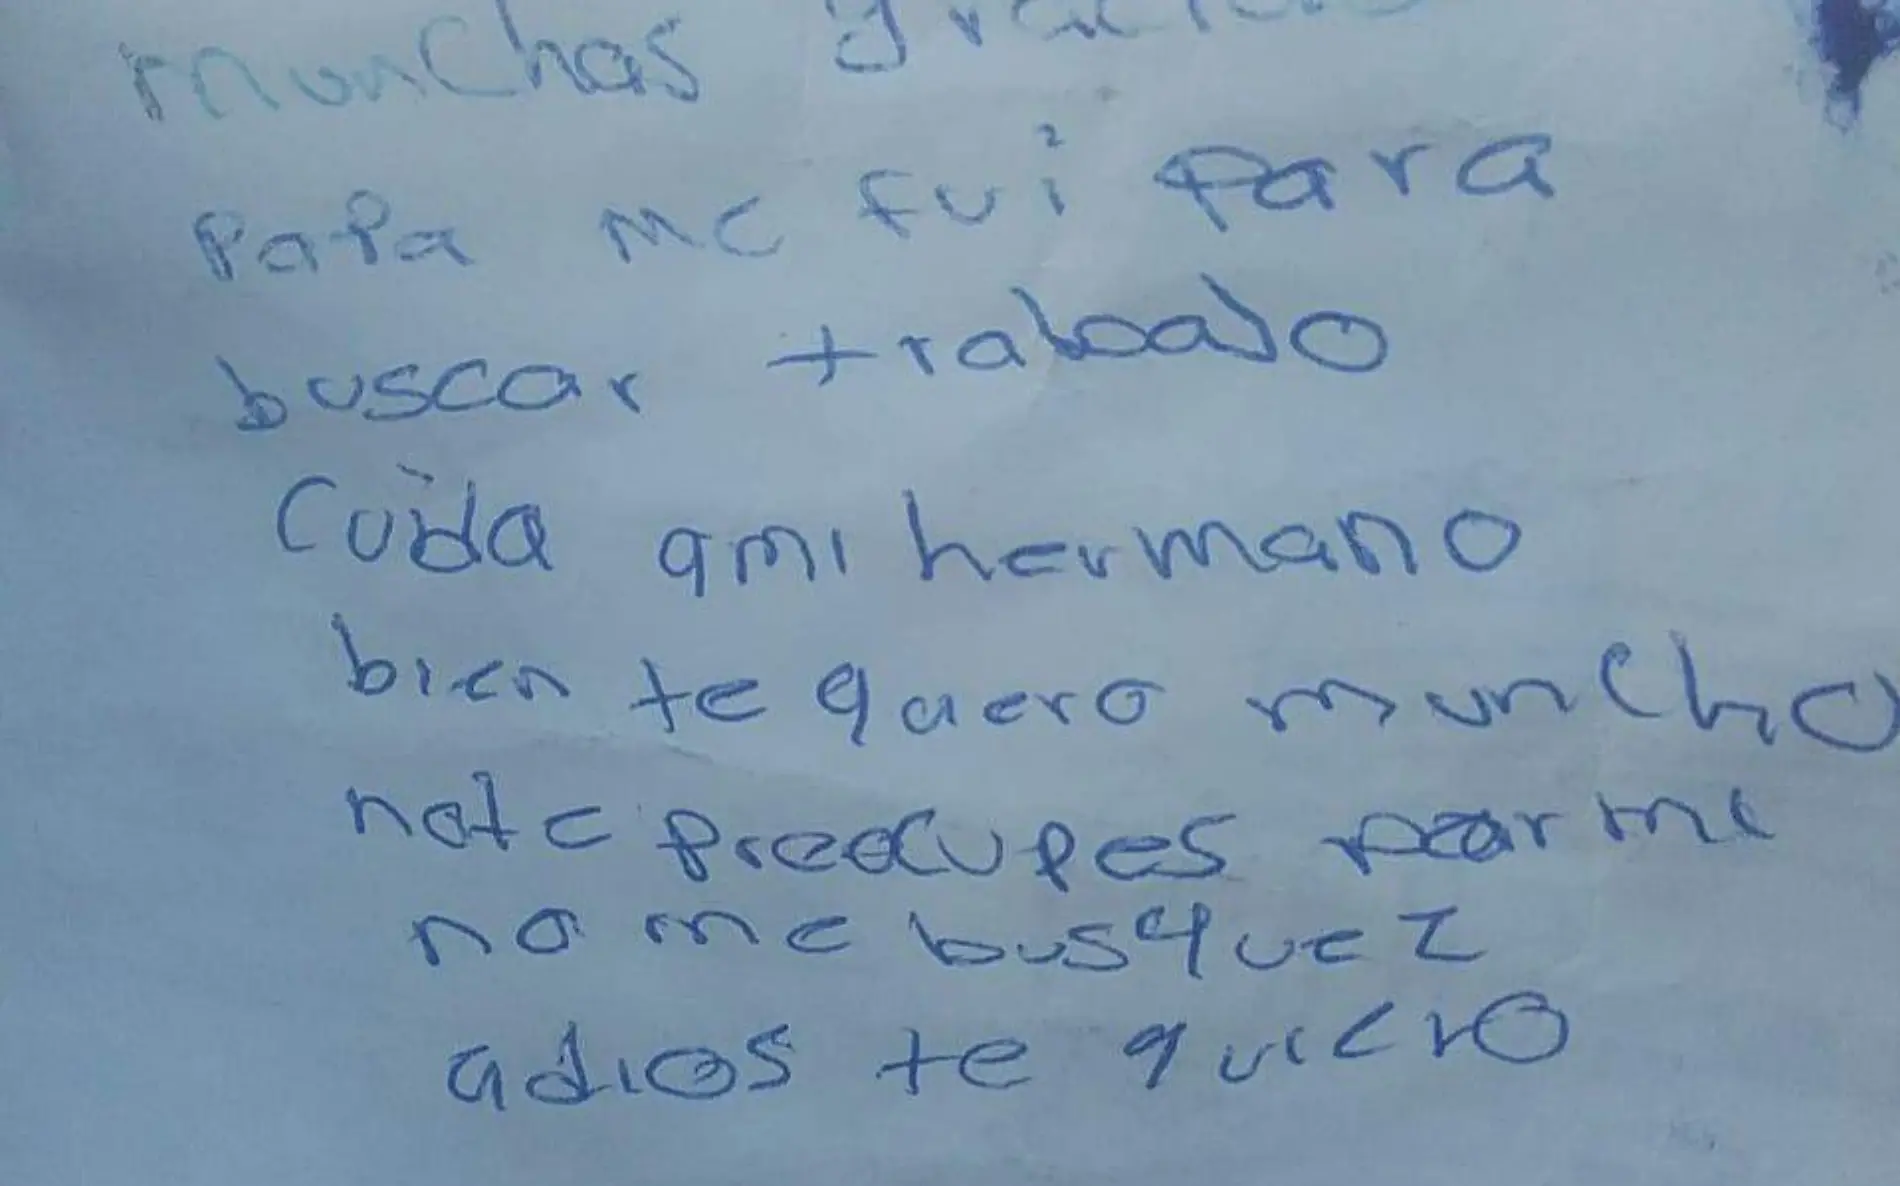 munchas gracias
papa me fui para
buscar trabajo
cuida ami hermano
bien te quero muncho
note preocupes por mi
no me busquez
adios te quiero